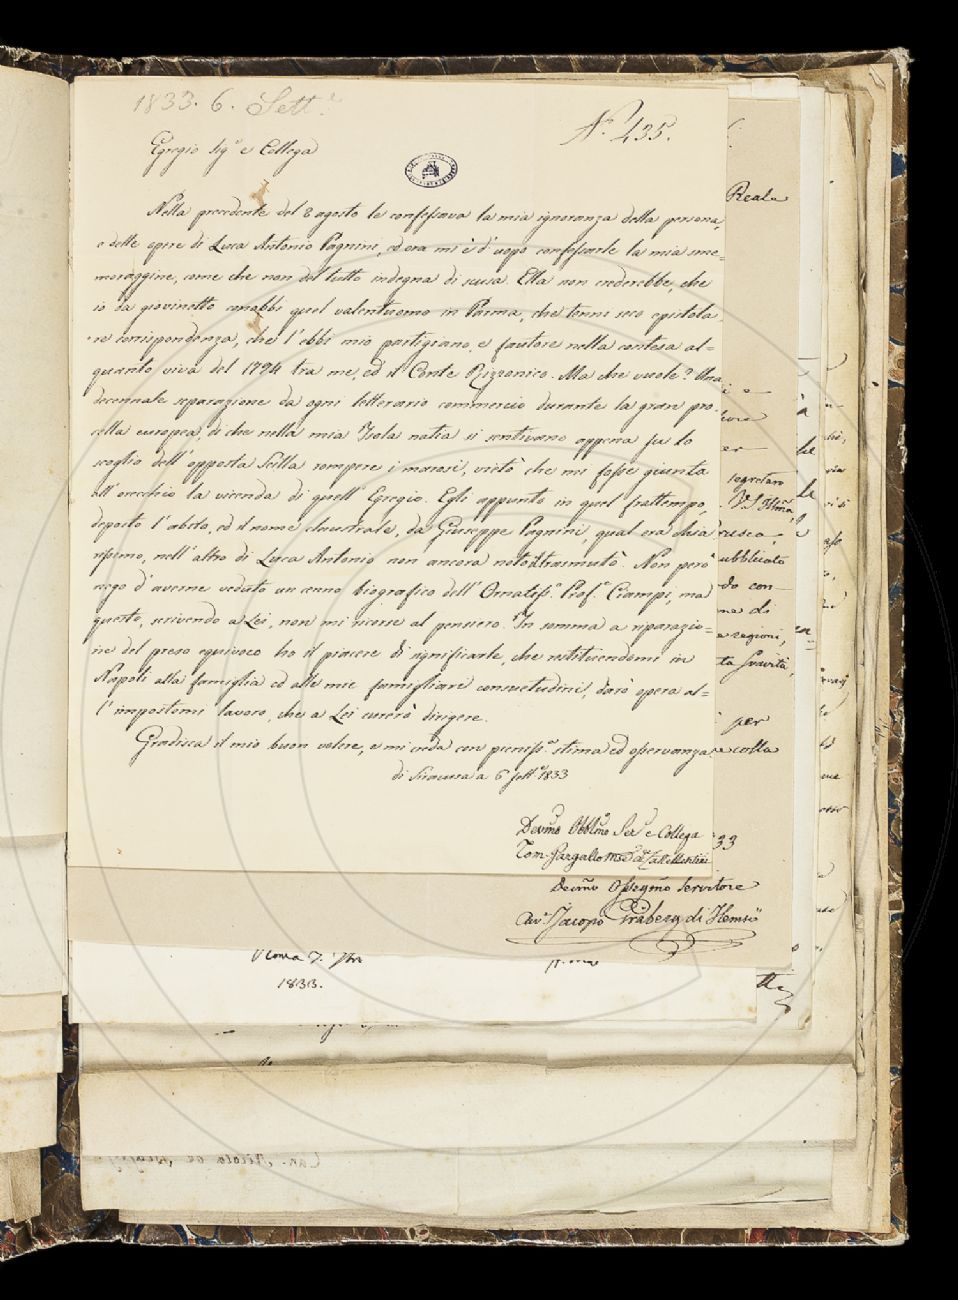 1833. 6. Sett.e
N.° 435.
Egregio Sig.r e Collega
Nella precedente del 8 agosto le confessava la mia ignoranza della persona,
e delle opere di Luca Antonio Pagnini, ed ora mi è d'uopo confessarle la mia sme=
moraggine, come che non del tutto indegna di scusa. Ella non crederebbe, che
io da giovinetto conobbi quel valentuomo in Parma, che tenni seco epistola
re corrispondenza, che l'ebbi mio partigiano, e fautore nella contesa al=
quanto viva del 1794 tra me, ed il Conte Rezzonico. Ma che vuole? Una
decennale separazione da ogni letterario commercio durante la gran pro
cella europea, di che nella mia Isola natia si sentivano appena su lo
scoglio dell'opposta Scilla rompere i marosi, vietò che mi fosse giunta
all'orecchio la vicenda di quell'Egregio. Egli appunto in quel frattempo,
deposto l'abito, ed il nome claustrale, da Giuseppe Pagnini, qual era chia
rissimo, nell'altro di Luca Antonio non ancora noto trasmutò. Non però
nego d'averne veduto un cenno biografico dell'Ornatiss.° Prof. Ciampi, ma
questo, scrivendo a Lei, non mi ricorse al pensiero. In somma a riparazio=
ne del preso equivoco ho il piacere di significarle, che restituendomi in
Napoli alla famiglia ed alle mie famigliari consuetudini, darò opera al=
l'impostomi lavoro, che a Lei curerò dirigere.
Gradisca il mio buon volere, e mi creda con pieniss.a stima ed osservanza.
di Siracusa a 6 sett.e 1833
Devmo Obblmo Ser.e e Collega
Tom. Gargallo
Reale
per
segretaro
V.S. Illma
ubblicato
do con
ne di
e regioni,
ta Gravità,
per
e colla
33
Devmo Ossegmo Servitore
Cav.e Jacopo Gråberg di Hemsö
1833.